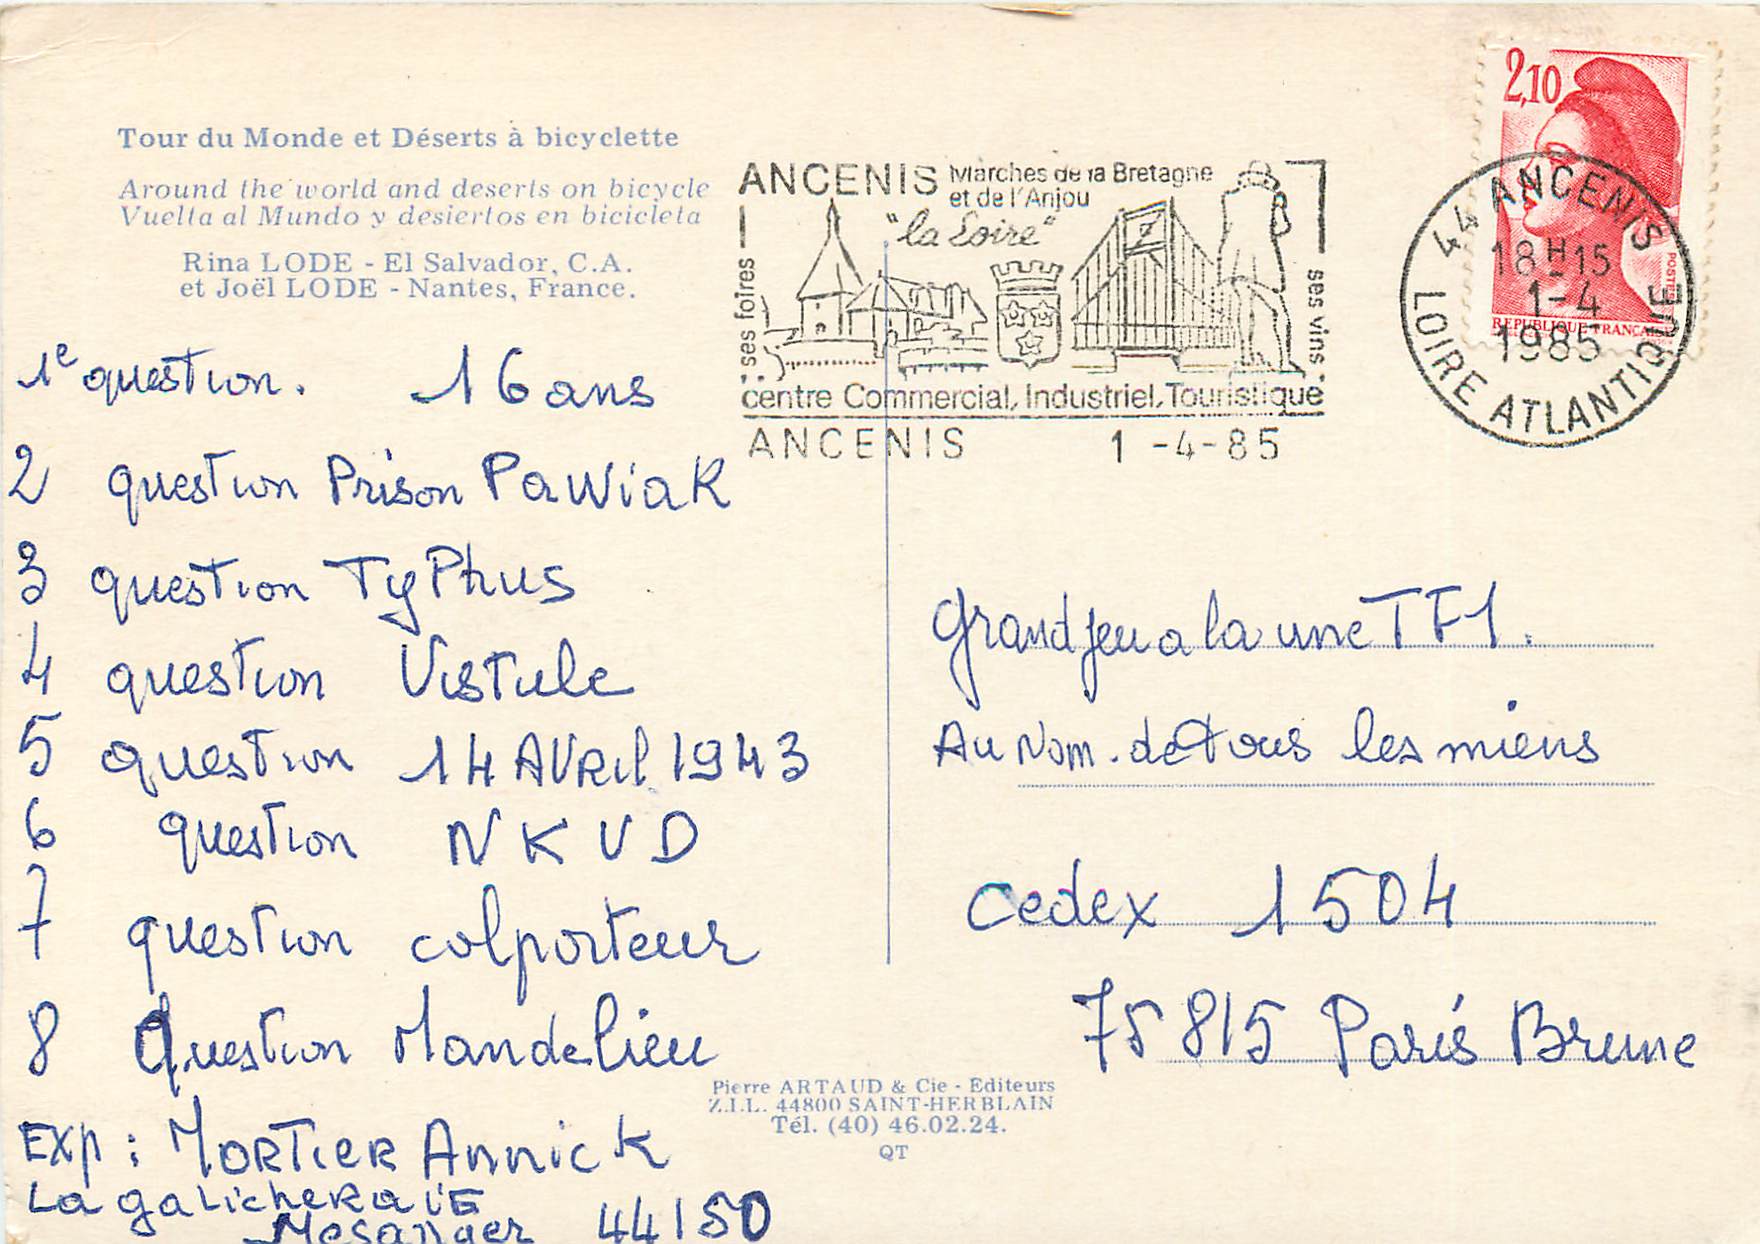 Tour du Monde et Déserts à bicyclette
Around the world and deserts on bicycle
Vuelta al Mundo y desiertos en bicicleta
Rina LODE - El Salvador, C.A.
et Joël LODE - Nantes, France.
1e question. 16 ans
2 question Prison PaWiaK
3 question TyPhus
4 question Vistule
5 question 14 AVRil 1943
6 question NKVD
7 question colporteur
8 Question Mandelieu
Exp : MORTIER Annick
La galicheraie
Mesanger 44150
ANCENIS Marches de la Bretagne
et de l'Anjou
"la Loire"
ses foires
ses vins
centre Commercial, Industriel, Touristique
ANCENIS 1 -4-85
2,10
POSTES
REPUBLIQUE FRANCAISE
44 ANCENIS
18H15
1-4
1985
LOIRE ATLANTIQUE
Grand jeu a la une TF1.
Au Nom. de tous les miens
Cedex 1504
75815 Paris Brune
Pierre ARTAUD & Cie - Editeurs
Z.I.L. 44800 SAINT-HERBLAIN
Tél. (40) 46.02.24.
QT